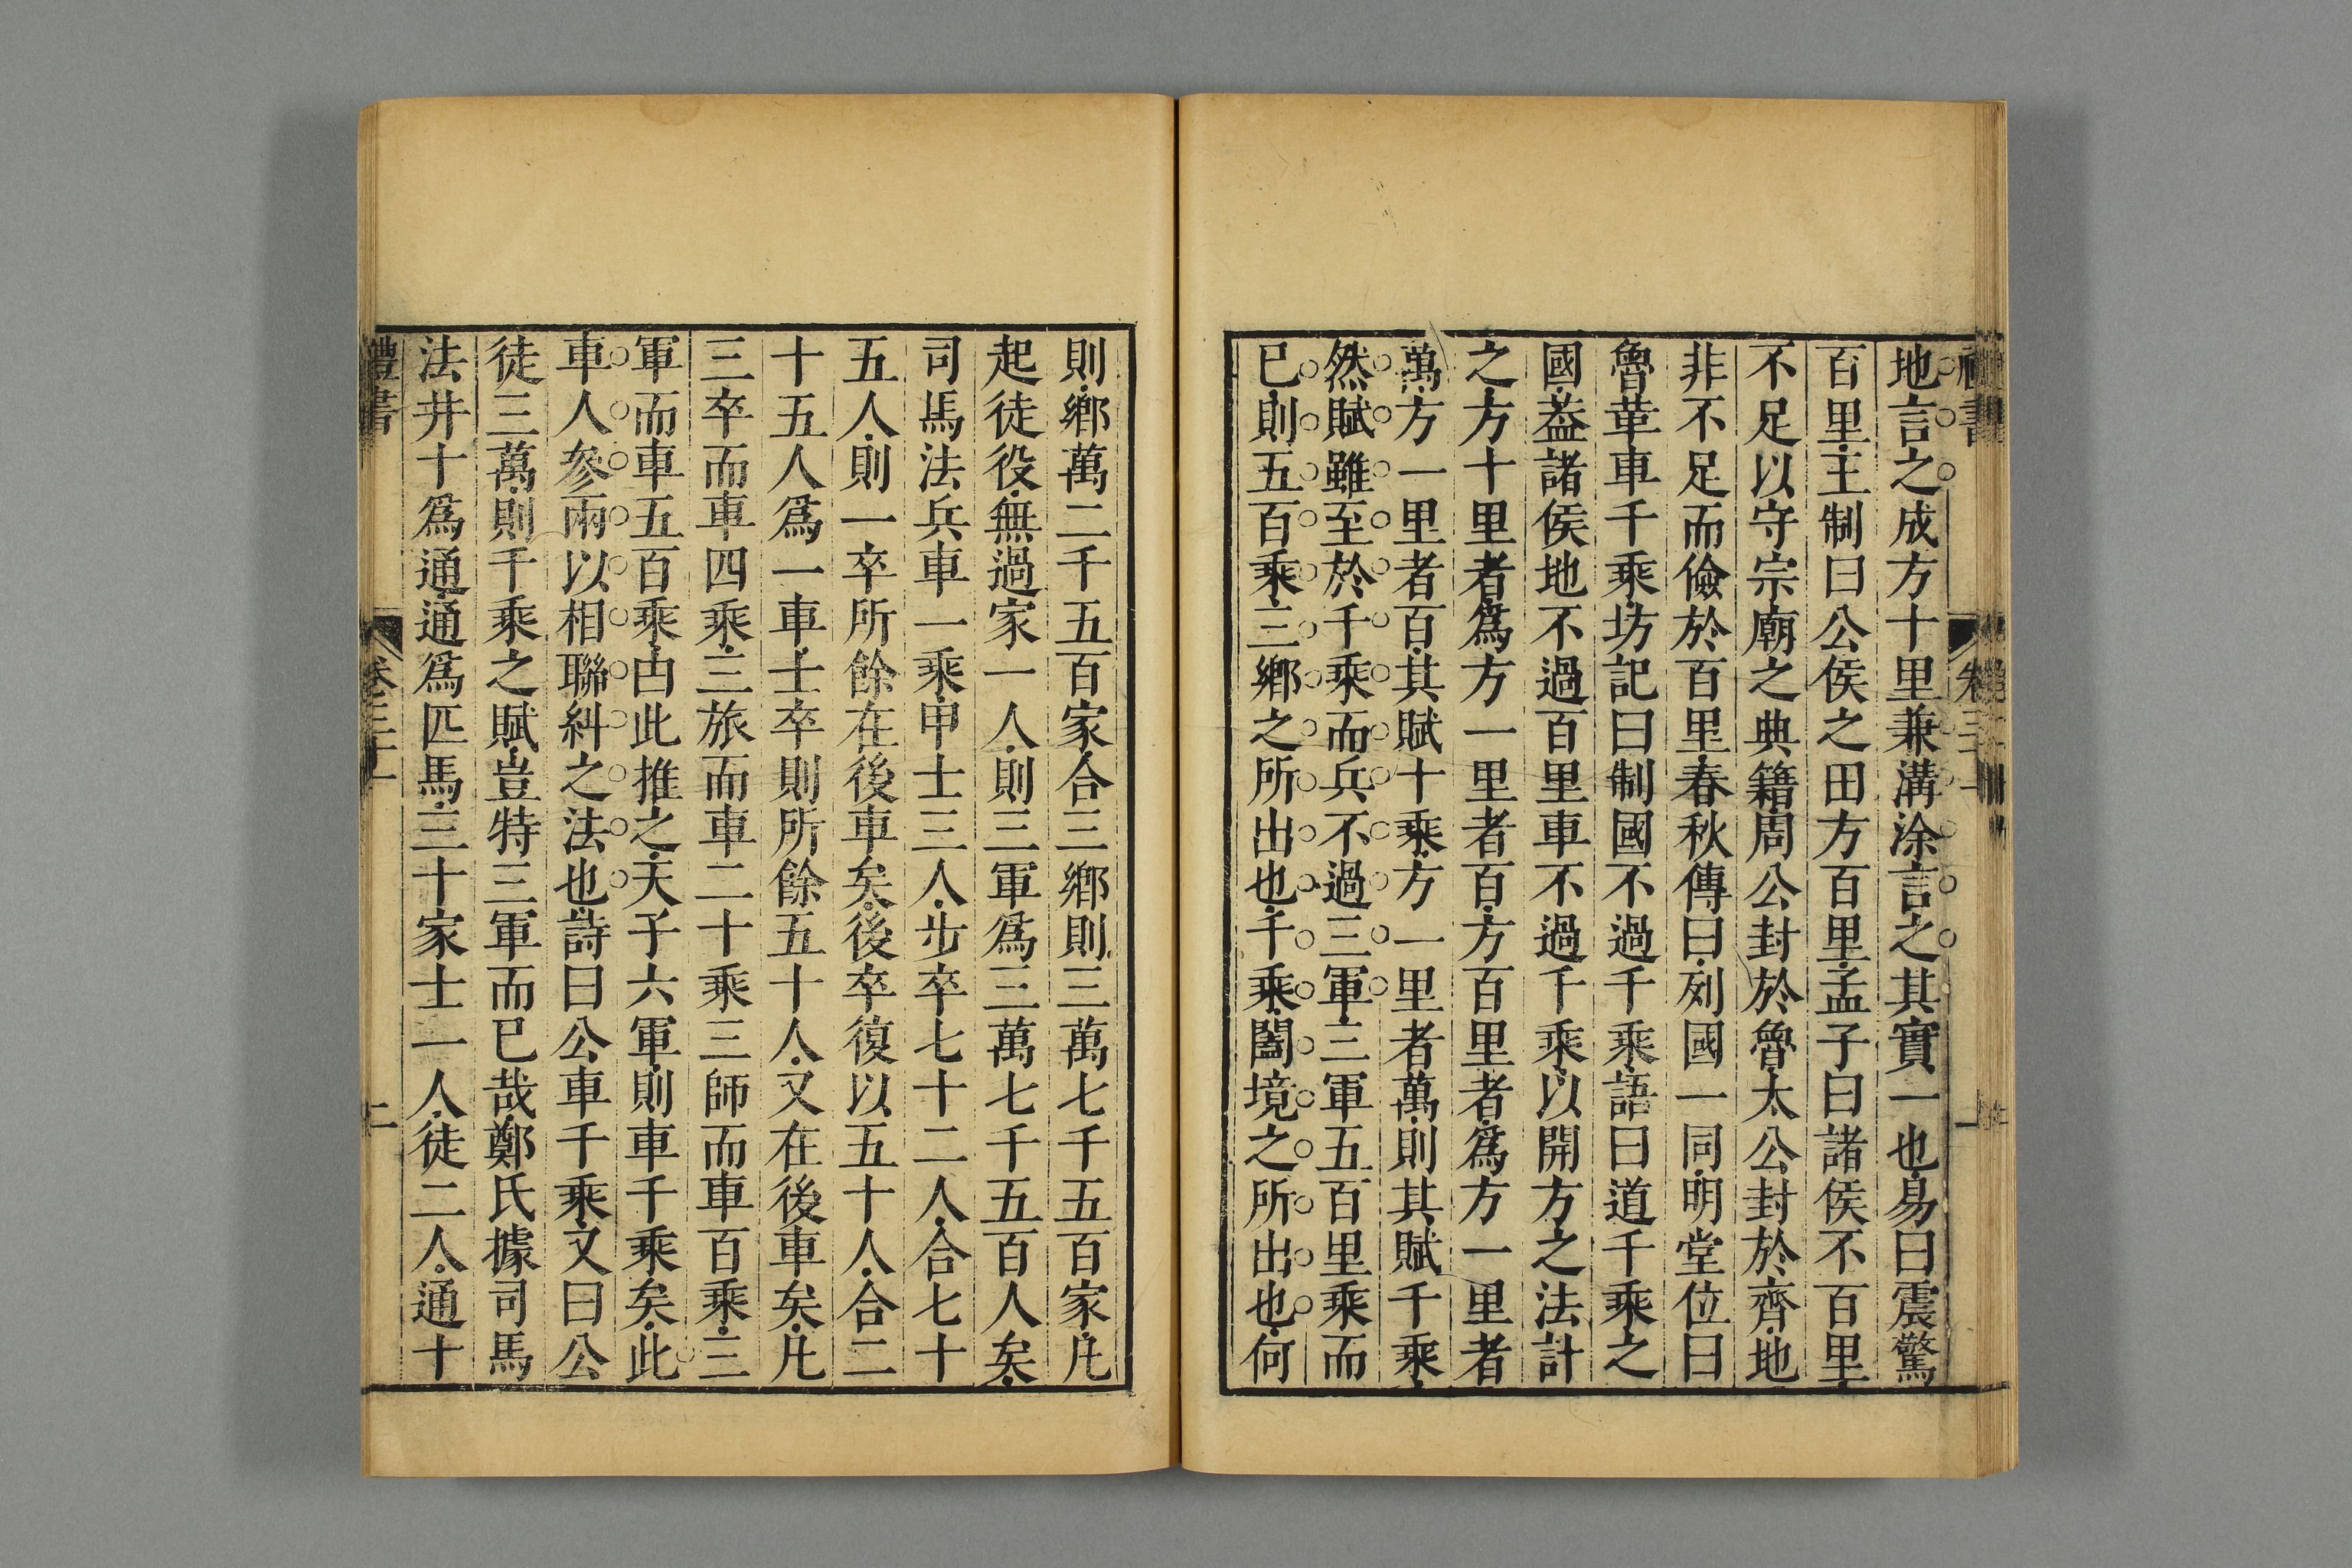 地言之成方十里兼溝涂言之其實一也易曰震驚
百里王制曰公侯之田方百里孟子曰諸侯不百里
不足以守宗廟之典籍周公封於魯太公封於齊地
非不足而儉於百里春秋傳曰列國一同明堂位曰
魯革車千乘坊記曰制國不過千乘語曰道千乘之
國葢諸侯地不過百里車不過千乘以開方之法計
之方十里者爲方一里者百方百里者爲方一里者
萬方一里者百其賦十乘方一里者萬則其賦千乘
然賦雖至於千乘而兵不過三軍三軍五百里乘而
已則五百乘三鄉之所出也千乘闔境之所出也何
則鄉萬二千五百家合三鄉則三萬七千五百家凡
起徒役無過家一人則三軍爲三萬七千五百人矣
司馬法兵車一乘甲士三人步卒七十二人合七十
五人則一卒所餘在後車矣後卒復以五十人合二
十五人爲一車士卒則所餘五十人又在後車矣凡
三卒而車四乘三旅而車二十乘三師而車百乘三
軍而車五百乘由此推之天子六軍則車千乘矣此
車人參兩以相聯糾之法也詩曰公車千乘又曰公
徒三萬則千乘之賦豈特三軍而已哉鄭氏據司馬
法井十爲通通爲匹馬三十家士一人徒二人通十
禮書 卷三十 二